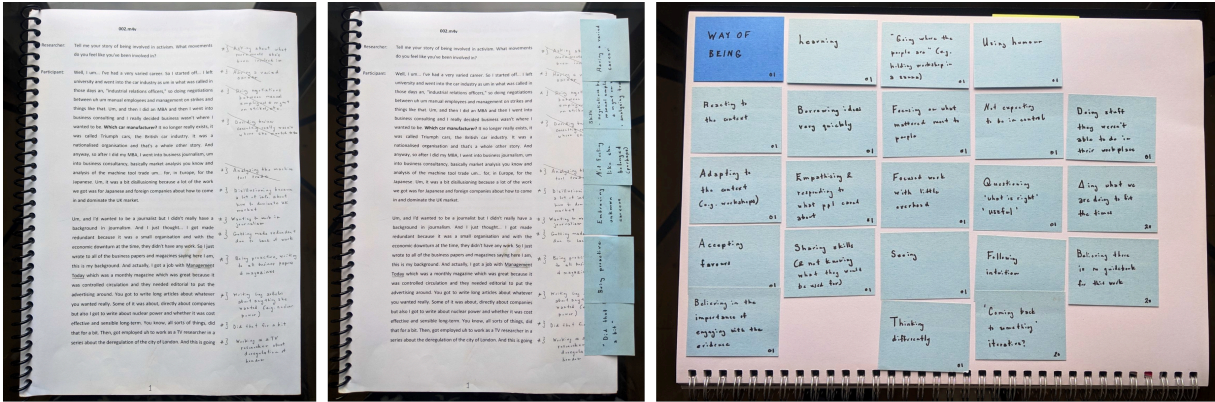 002.m4v
Researcher: Tell me your story of being involved in activism. What movements
do you feel like you've been involved in?
Participant: Well, I um... I've had a very varied career. So I started off... I left
university and went into the car industry as um in what was called in
those days an, "Industrial relations officers," so doing negotiations
between uh um manual employees and management on strikes and
things like that. Um, and then I did an MBA and then I went into
business consulting and I really decided business wasn't where I
wanted to be. Which car manufacturer? It no longer really exists, it
was called Triumph cars, the British car industry. It was a
nationalised organisation and that's a whole other story. And
anyway, so after I did my MBA, I went into business journalism; um
into business consultancy, basically market analysis you know and
analysis of the machine tool trade um... for, in Europe, for the
Japanese. Um, it was a bit disillusioning because a lot of the work
we got was for Japanese and foreign companies about how to come
in and dominate the UK market.
Um, and I'd wanted to be a journalist but I didn't really have a
background in journalism. And I just thought... I got made
redundant because it was a small organisation and with the
economic downturn at the time, they didn't have any work. So I just
wrote to all of the business papers and magazines saying here I am,
this is my background. And actually, I got a job with Management
Today which was a monthly magazine which was great because it
was controlled circulation and they needed editorial to put the
advertising around. You got to write long articles about whatever
you wanted really. Some of it was about, directly about companies
but also I got to write about nuclear power and whether it was cost
effective and sensible long-term. You know, all sorts of things, did
that for a bit. Then, got employed uh to work as a TV researcher in a
series about the deregulation of the city of London. And this is going
1
Having a varied
career
Wanting to work in
journalism
Getting made redundant
due to lack of work
Being proactive, writing
to all business papers
& magazines
Did that for a bit
Working as a TV
researcher
002.m4v
Researcher: Tell me your story of being involved in activism. What movements
do you feel like you've been involved in?
Participant: Well, I um... I've had a very varied career. So I started off... I left
university and went into the car industry as um in what was called in
those days an, "Industrial relations officers," so doing negotiations
between uh um manual employees and management on strikes and
things like that. Um, and then I did an MBA and then I went into
business consulting and I really decided business wasn't where I
wanted to be. Which car manufacturer? It no longer really exists, it
was called Triumph cars, the British car industry. It was a
nationalised organisation and that's a whole other story. And
anyway, so after I did my MBA, I went into business journalism; um
into business consultancy, basically market analysis you know and
analysis of the machine tool trade um... for, in Europe, for the
Japanese. Um, it was a bit disillusioning because a lot of the work
we got was for Japanese and foreign companies about how to come
in and dominate the UK market.
Um, and I'd wanted to be a journalist but I didn't really have a
background in journalism. And I just thought... I got made
redundant because it was a small organisation and with the
economic downturn at the time, they didn't have any work. So I just
wrote to all of the business papers and magazines saying here I am,
this is my background. And actually, I got a job with Management
Today which was a monthly magazine which was great because it
was controlled circulation and they needed editorial to put the
advertising around. You got to write long articles about whatever
you wanted really. Some of it was about, directly about companies
but also I got to write about nuclear power and whether it was cost
effective and sensible long-term. You know, all sorts of things, did
that for a bit. Then, got employed uh to work as a TV researcher in a
series about the deregulation of the city of London. And this is going
1
Having a varied
career
Not feeling
like she
belonged
Embracing
unknown
Being proactive
"Did that
a bit"
WAY OF
BEING
01
Learning
01
"Going where the
people are" (e.g.
holding workshop in
a sauna)
01
Using humour
01
Reacting to
the context
01
Borrowing ideas
very quickly
01
Focusing on what
mattered most to
people
01
Not expecting
to be in control
01
Doing stuff
they weren't
able to do in
their workplace
01
Adapting to
the context
(e.g. workshops)
01
Empathising &
responding to
what ppl cared
about
01
Focused work
with little
overhead
01
Questioning
'what is right'
'useful'
01
Δing what we
are doing to fit
the times
20
Accepting
favours
01
Sharing skills
(& not knowing
what they would
be used for)
01
Seeing
01
Following
intuition
01
Believing there
is no guidebook
for this work
20
Believing in the
importance of
engaging with the
evidence
01
Thinking
differently
01
'Coming back
to something'
iterative?
20